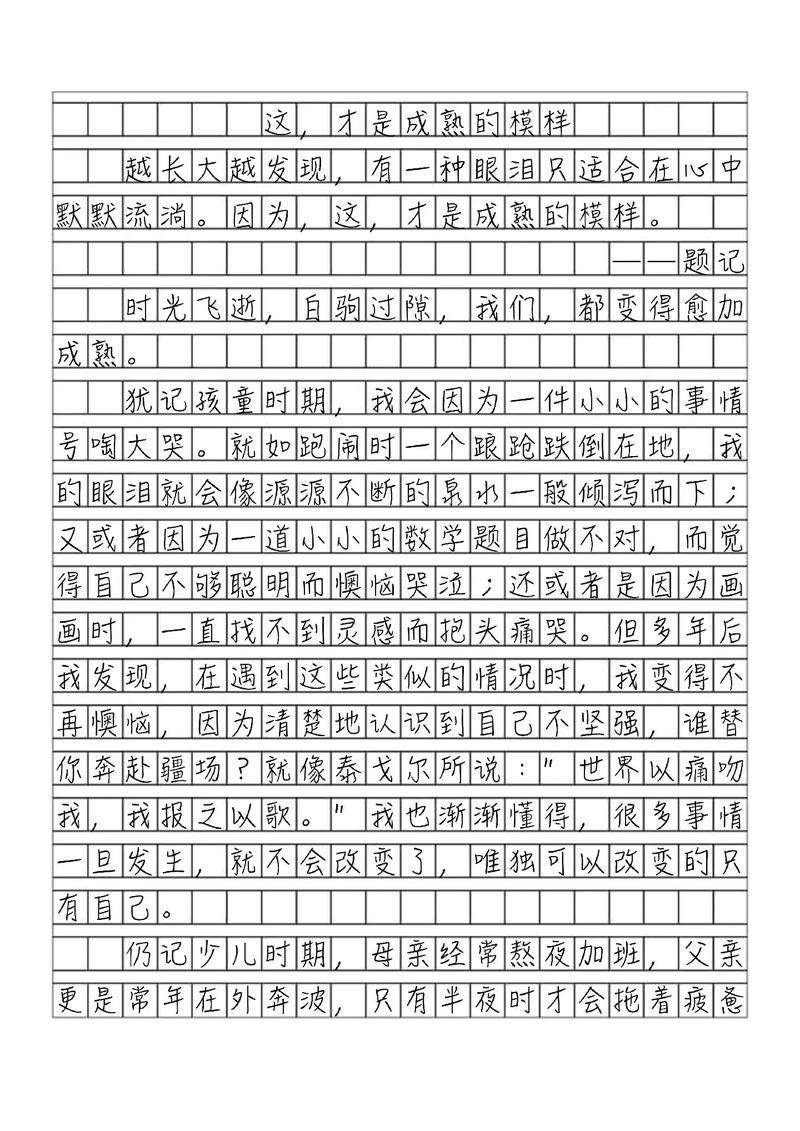 这，才是成熟的模样
越长大越发现，有一种眼泪只适合在心中
默默流淌。因为，这，才是成熟的模样。
——题记
时光飞逝，白驹过隙，我们，都变得愈加
成熟。
犹记孩童时期，我会因为一件小小的事情
号啕大哭。就如跑闹时一个踉跄跌倒在地，我
的眼泪就会像源源不断的泉水一般倾泻而下；
又或者因为一道小小的数学题目做不对，而觉
得自己不够聪明而懊恼哭泣；还或者是因为画
画时，一直找不到灵感而抱头痛哭。但多年后
我发现，在遇到这些类似的情况时，我变得不
再懊恼，因为清楚地认识到自己不坚强，谁替
你奔赴疆场？就像泰戈尔所说："世界以痛吻
我，我报之以歌。"我也渐渐懂得，很多事情
一旦发生，就不会改变了，唯独可以改变的只
有自己。
仍记少儿时期，母亲经常熬夜加班，父亲
更是常年在外奔波，只有半夜时才会拖着疲惫